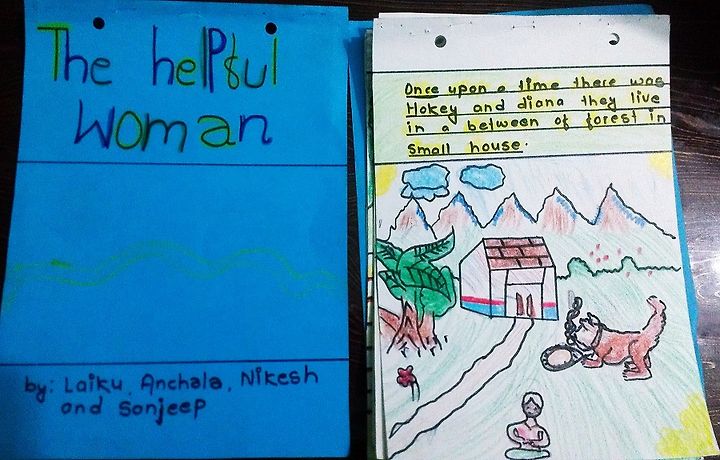 The helpful
Woman
by: Laiku, Anchala, Nikesh
and Sonjeep
Once upon a time there was
Hokey and diana they live
in a between of forest in
Small house.